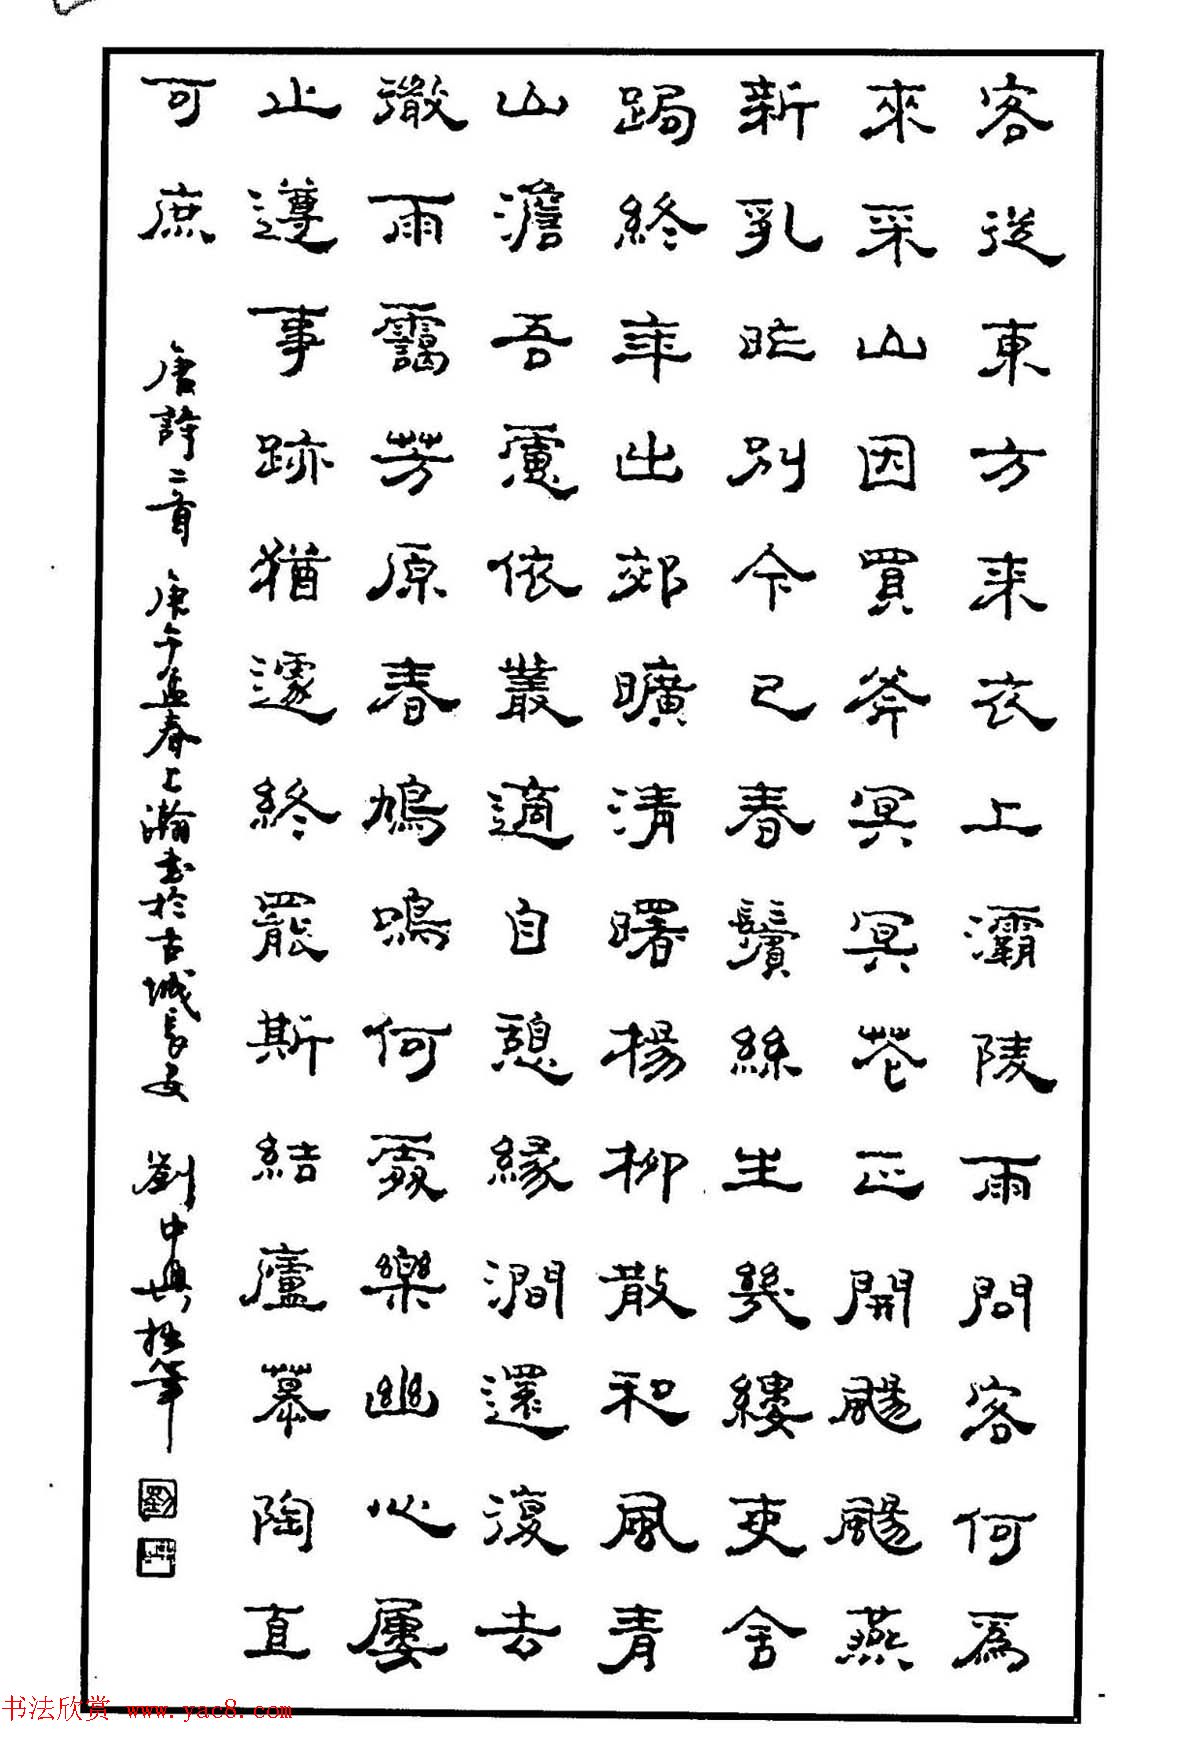 客從東方来衣上灞陵雨問客何為
來采山因買斧冥冥花正開颺颺燕
新乳昨別今已春鬢絲生幾縷吏舍
跼終年出郊曠清曙楊柳散和風青
山澹吾慮依叢適自憩緣澗還復去
微雨靄芳原春鳩鳴何處樂幽心屢
止遵事跡猶遽終罷斯結廬慕陶直
可庶
唐詩二首 庚午孟春上瀚書於古城長安 劉中興拙筆
劉
书法欣赏 www.yac8.com